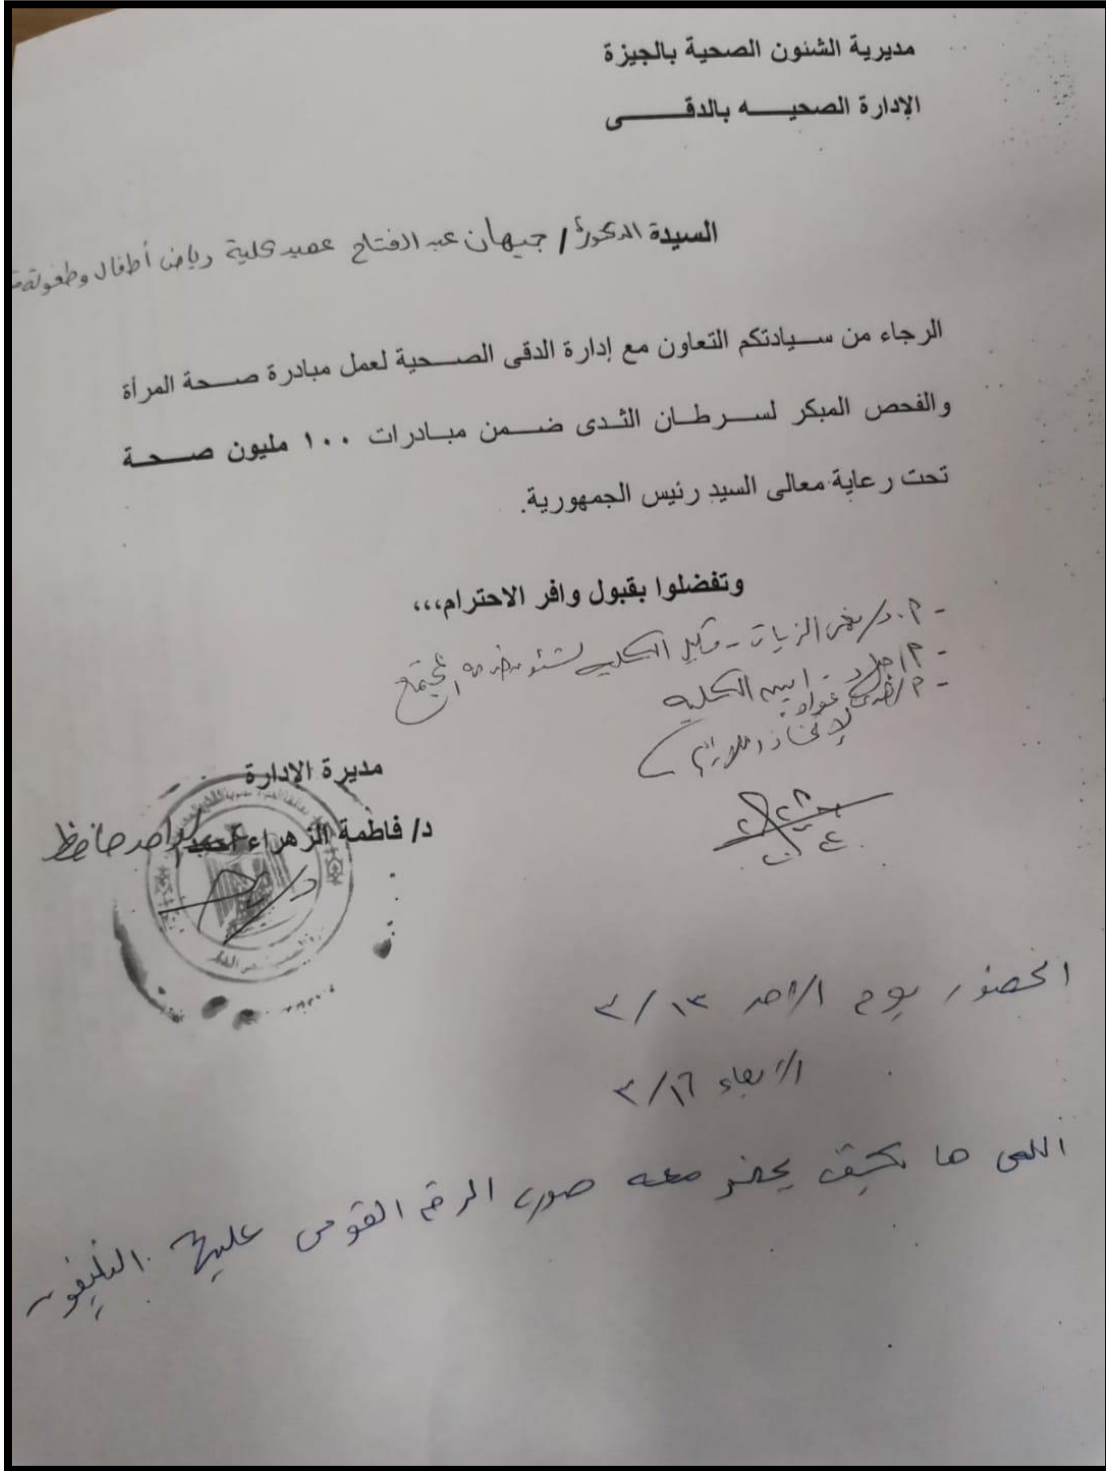 مديرية الشئون الصحية بالجيزة
الإدارة الصحيـــــه بالدقـــــــى
السيدة الدكتورة / جيهان عبد الفتاح عميد كلية رياض أطفال وطفولة
الرجاء من ســيادتكم التعاون مع إدارة الدقى الصــحية لعمل مبادرة صــحة المرأة
والفحص المبكر لســرطــان الثــدى ضــمن مبــادرات ١٠٠ مليون صــحــة
تحت رعاية معالى السيد رئيس الجمهورية.
وتفضلوا بقبول وافر الاحترام،،،
الزيات - وكيل الكلية لشئون خدمة المجتمع
- أمين الكلية
لإتخاذ اللازم
مديرة الإدارة
د/ فاطمة الزهراء أحمد حافظ
الحضور يوم الأحد ٣/١٣
الأربعاء ٣/١٦
اللى ها يكشف يحضر معه صورة الرقم القومى عليها التليفون